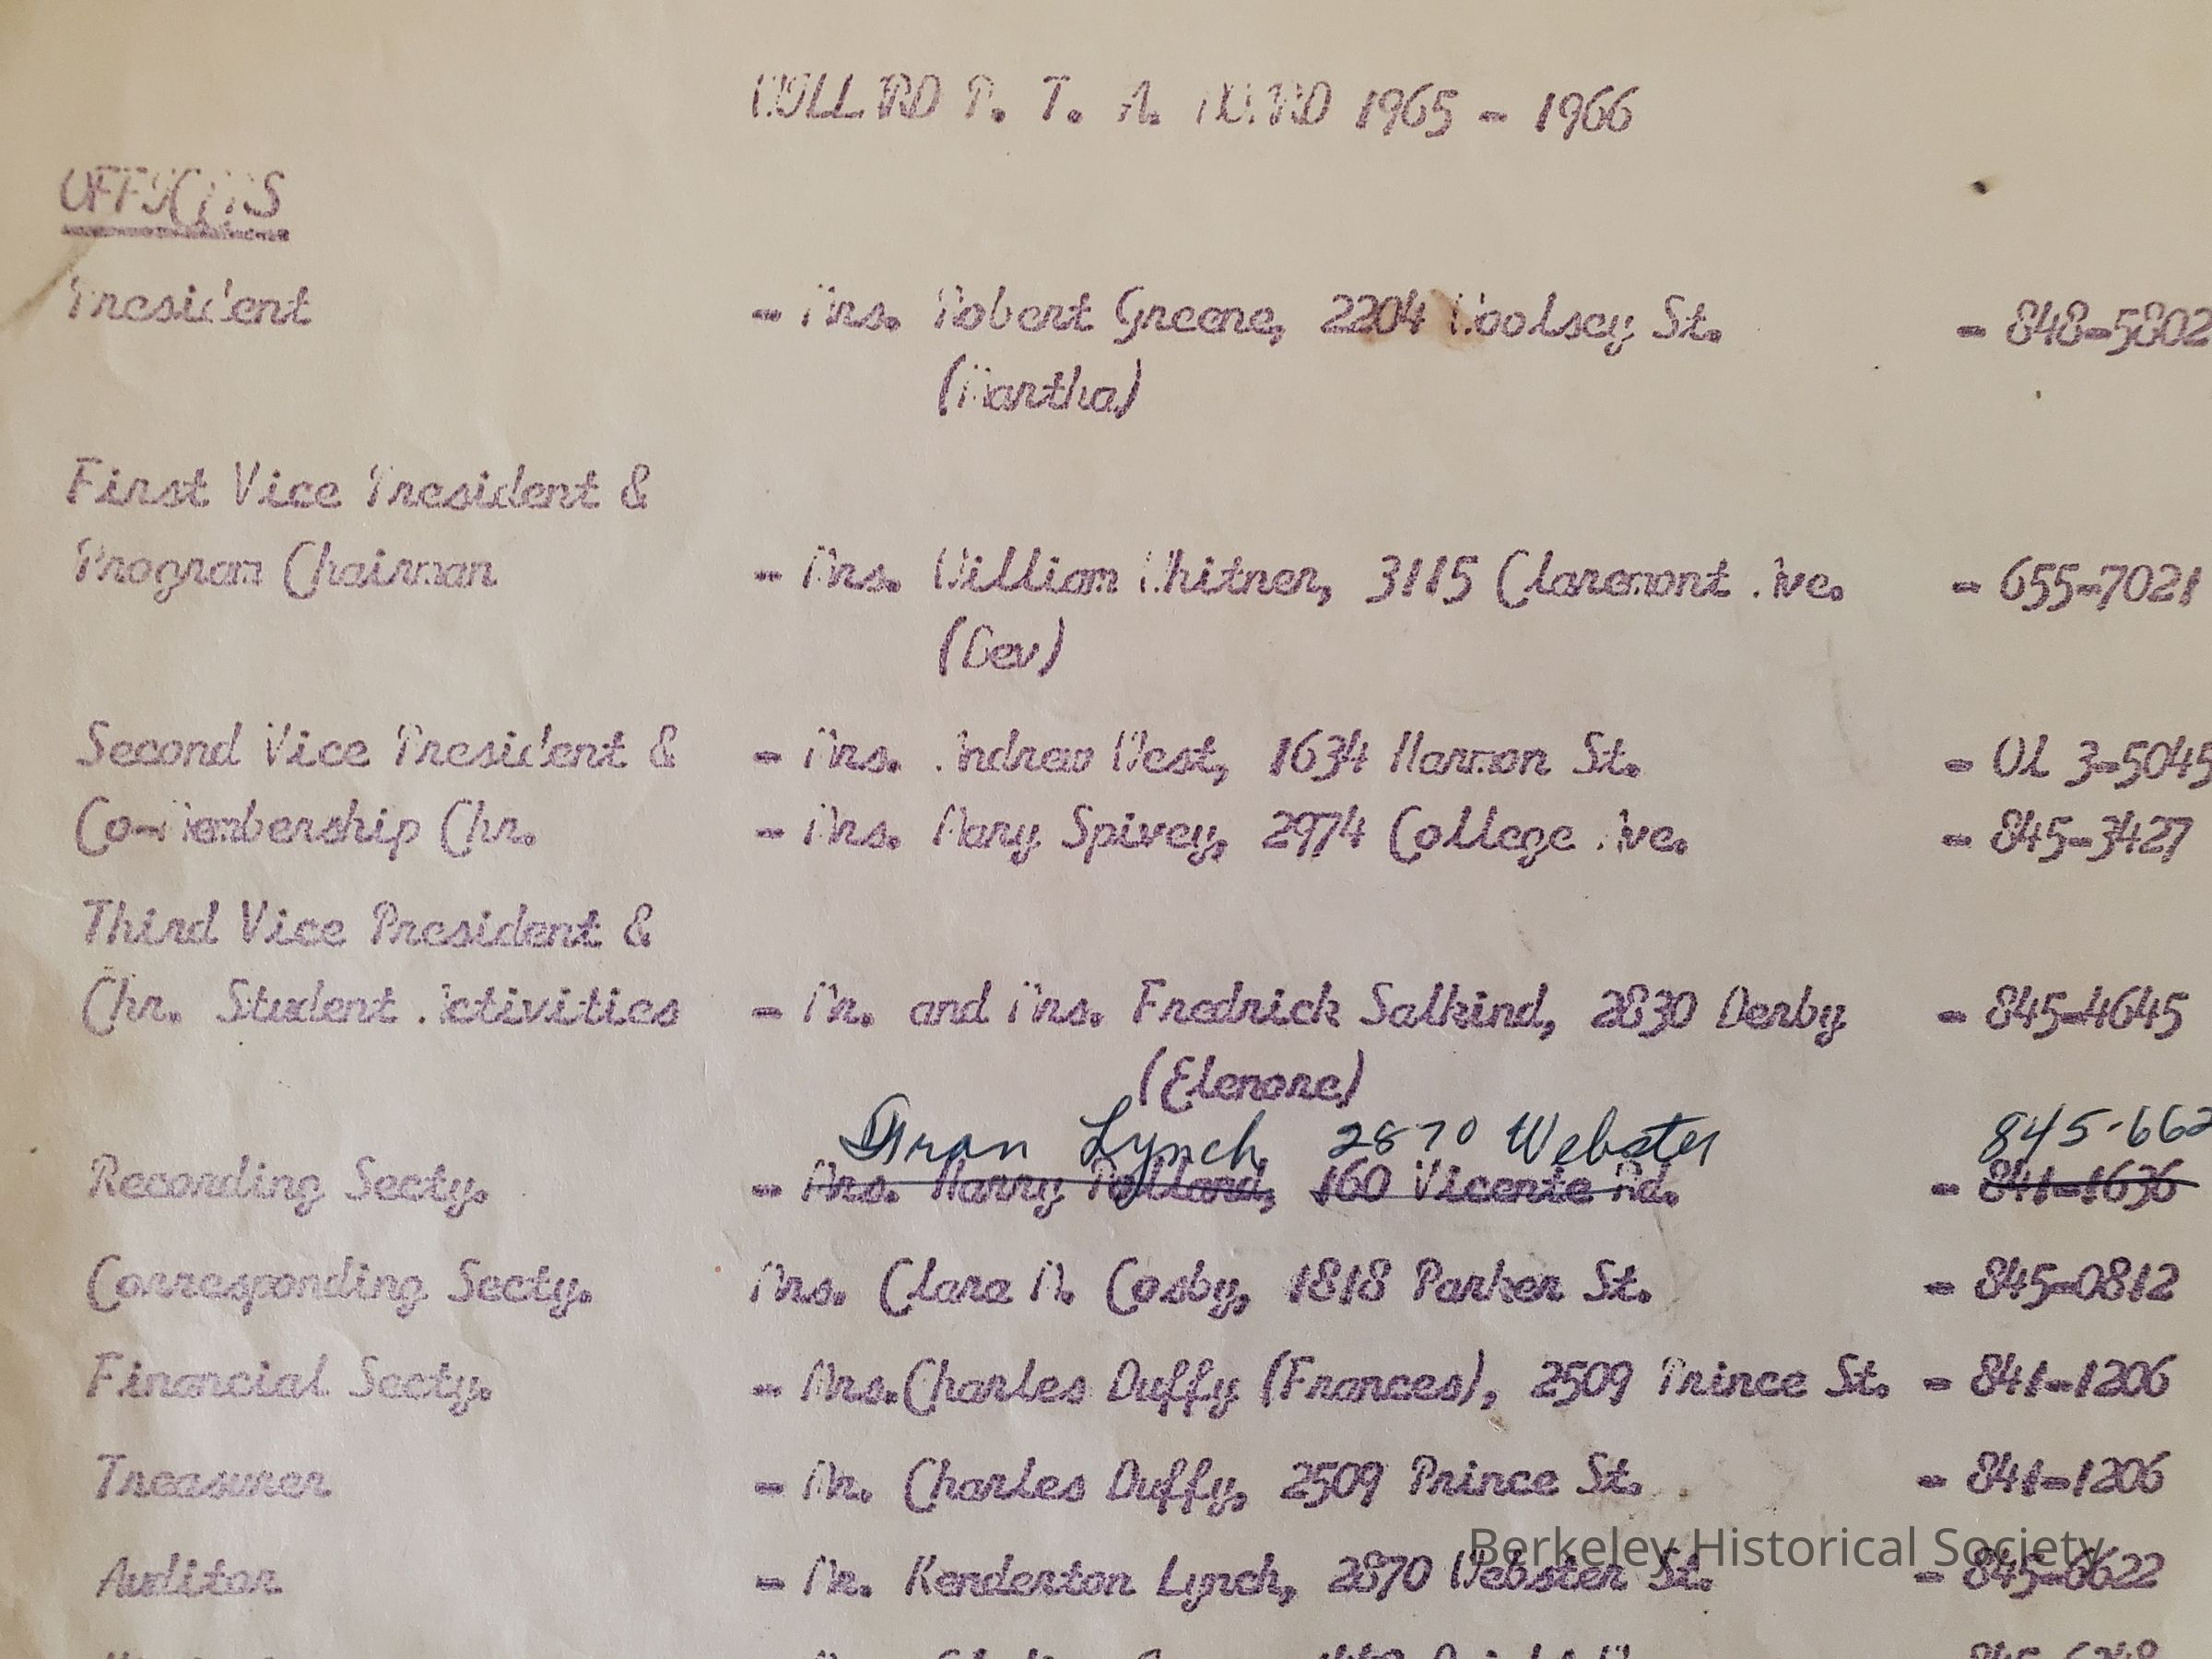 WILLARD P. T. A. BOARD 1965 - 1966
OFFICERS
President - Mrs. Robert Greene, 2204 Woolsey St. - 848-5802
(Martha)
First Vice President &
Program Chairman - Mrs. William Whitner, 3115 Claremont Ave. - 655-7021
(Bev)
Second Vice President & - Mrs. Andrew West, 1634 Harmon St. - OL 3-5045
Co-Membership Chr. - Mrs. Mary Spivey, 2974 College Ave. - 845-3427
Third Vice President &
Chr. Student Activities - Mr. and Mrs. Fredrick Salkind, 2830 Derby - 845-4645
(Elenore)
Fran Lynch 2870 Webster 845-662
Recording Secty. - Mrs. Harry Polland, 160 Vicente Rd. - 841-1636
Corresponding Secty. Mrs. Clara M. Cosby, 1818 Parker St. - 845-0812
Financial Secty. - Mrs. Charles Duffy (Frances), 2509 Prince St. - 841-1206
Treasurer - Mr. Charles Duffy, 2509 Prince St. - 841-1206
Berkeley Historical Society
Auditor - Mr. Kenderton Lynch, 2870 Webster St. - 845-6622